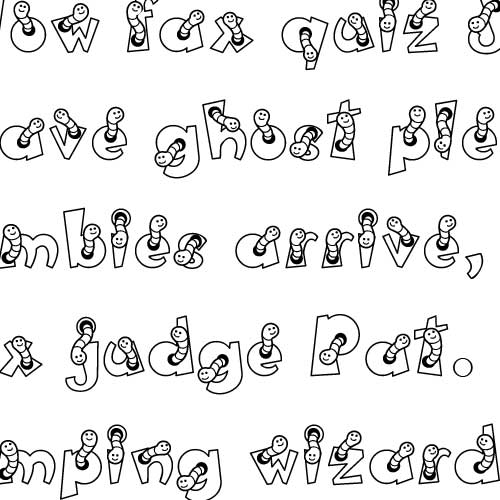 ow fax quiz
ave ghost ple
mbies arrive,
x judge Pat.
mping wizard